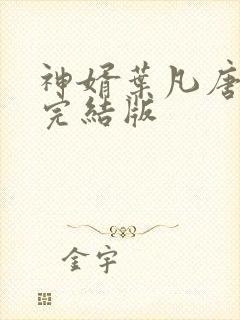 神婿葉凡唐
完結版
金宇